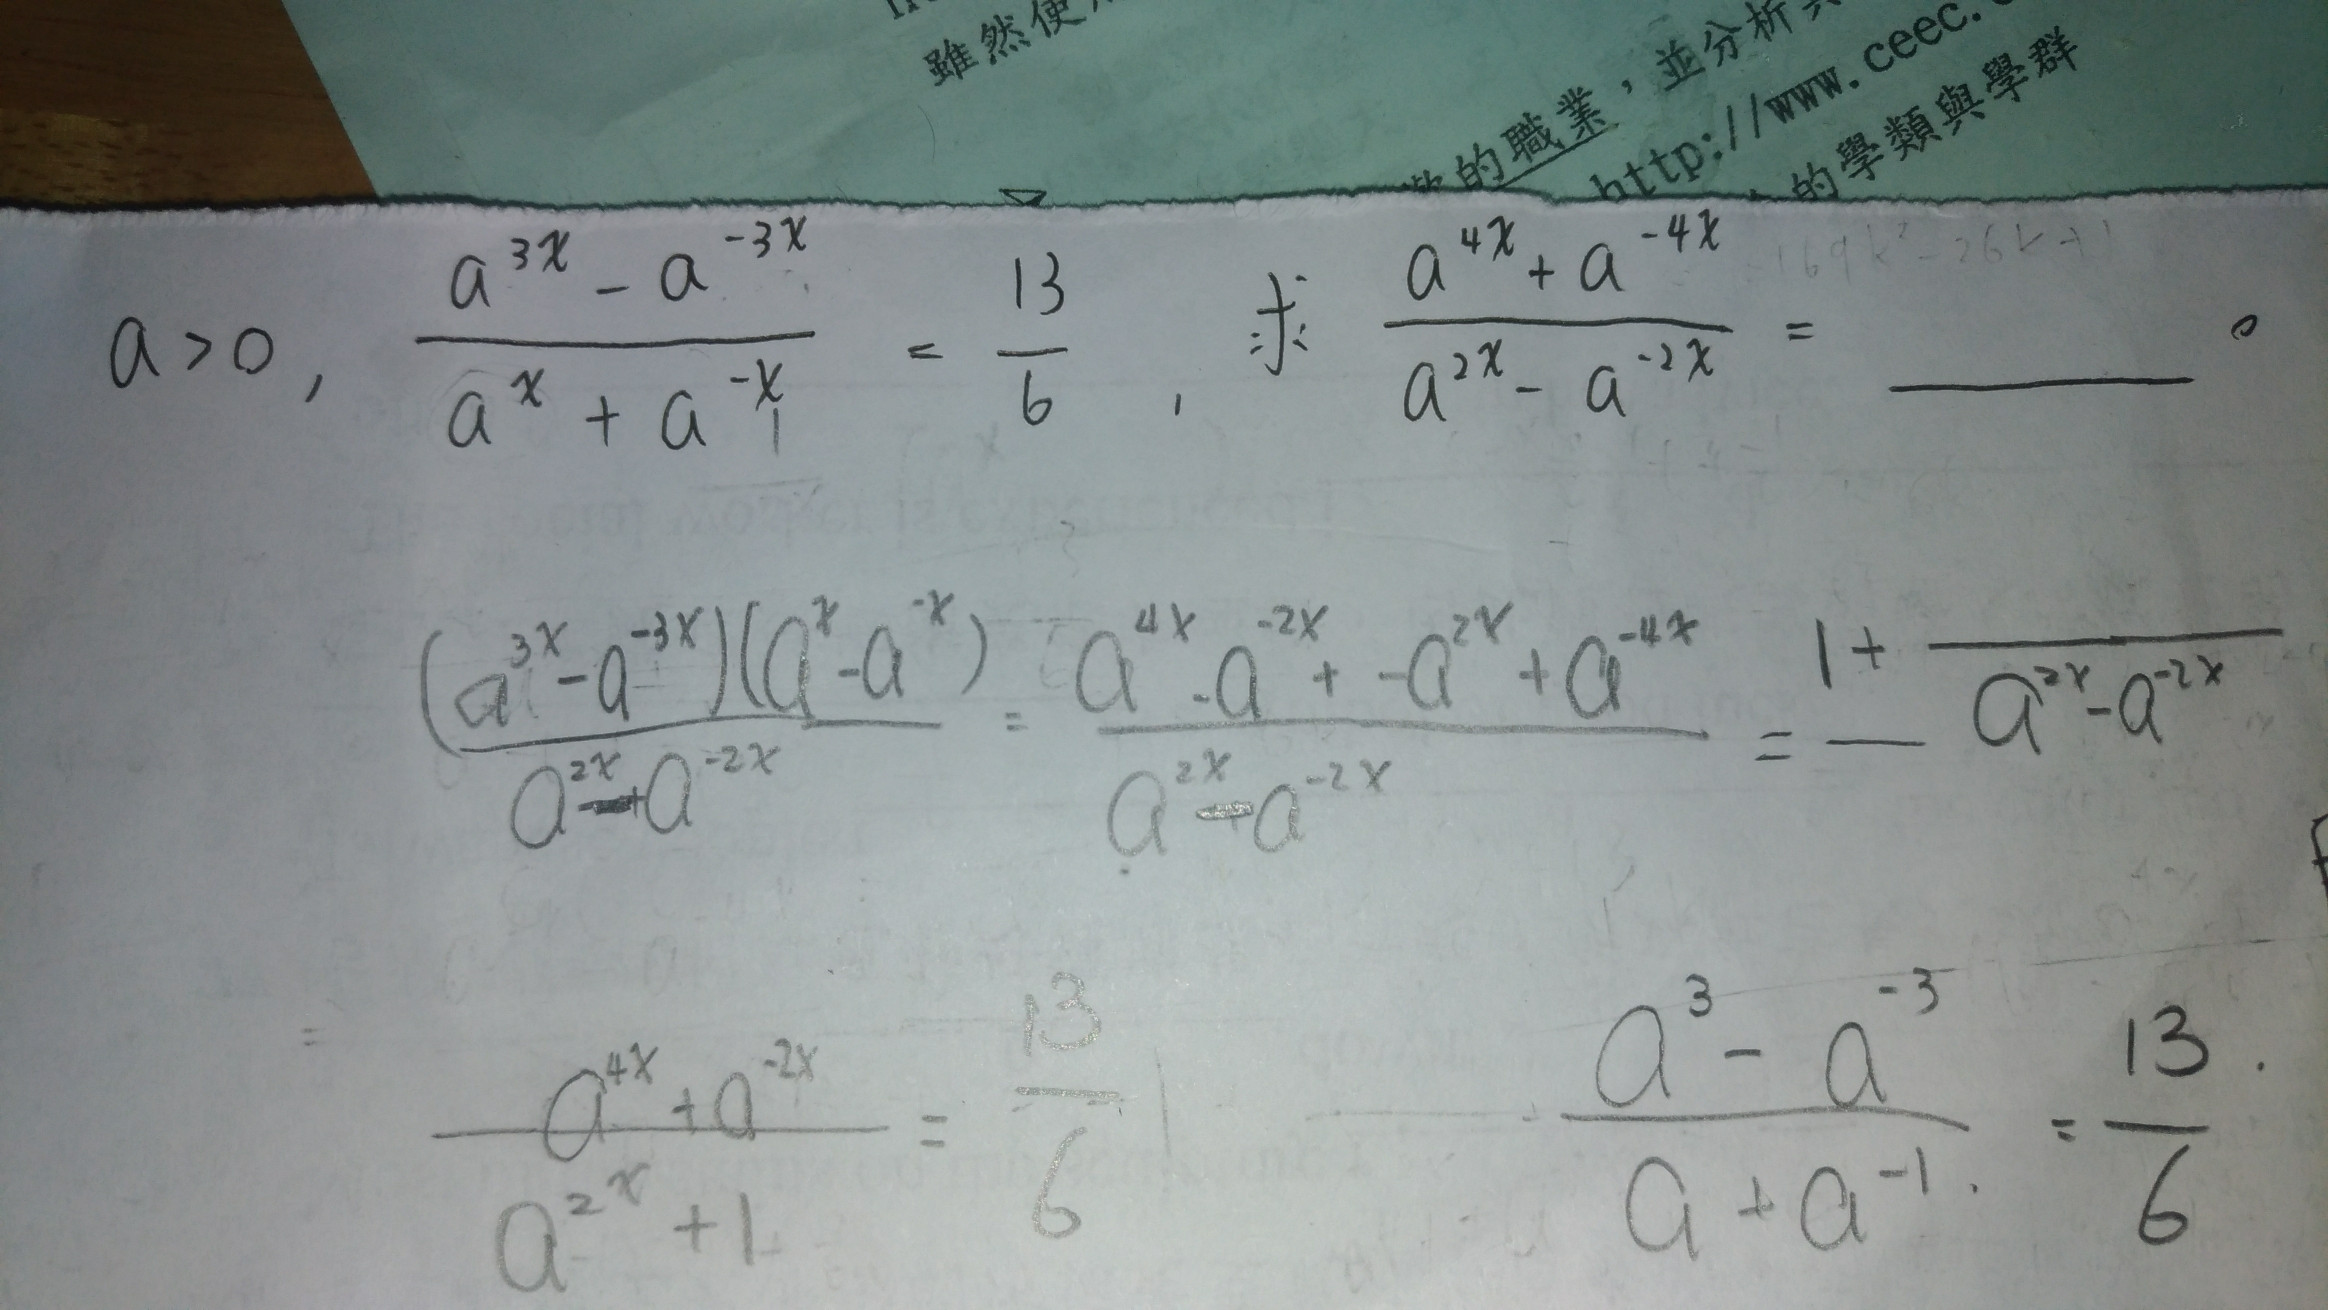 雖然使
的職業，並分析
http://www.ceec.
的學類與學群
a>0, (a^{3x} - a^{-3x})/(a^x + a^{-x}) = 13/6 , 求 (a^{4x} + a^{-4x})/(a^{2x} - a^{-2x}) = ______ 。
((a^{3x} - a^{-3x})(a^x - a^{-x}))/(a^{2x} - a^{-2x}) = (a^{4x} - a^{-2x} + -a^{2x} + a^{-4x})/(a^{2x} - a^{-2x}) = 1+ —/(a^{2x} - a^{-2x})
= (a^{4x} + a^{-2x})/(a^{2x} + 1) = 13/6
(a^3 - a^{-3})/(a + a^{-1}) = 13/6